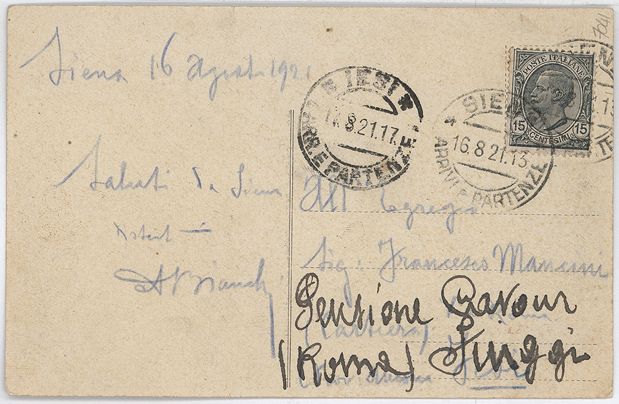 Siena 16 Agosto 1921
Saluti da Siena
ABianchi
704
* IESI *
ARR. E PARTENZE
8.21.17
SIENA
16.8.21.13
ARRIVI E PARTENZE
POSTE ITALIANE
15 CENTESIMI 15
All Egregio
Sig: Francesco Mancini
Pensione Cavour
(Roma) Fiuggi
Iesi